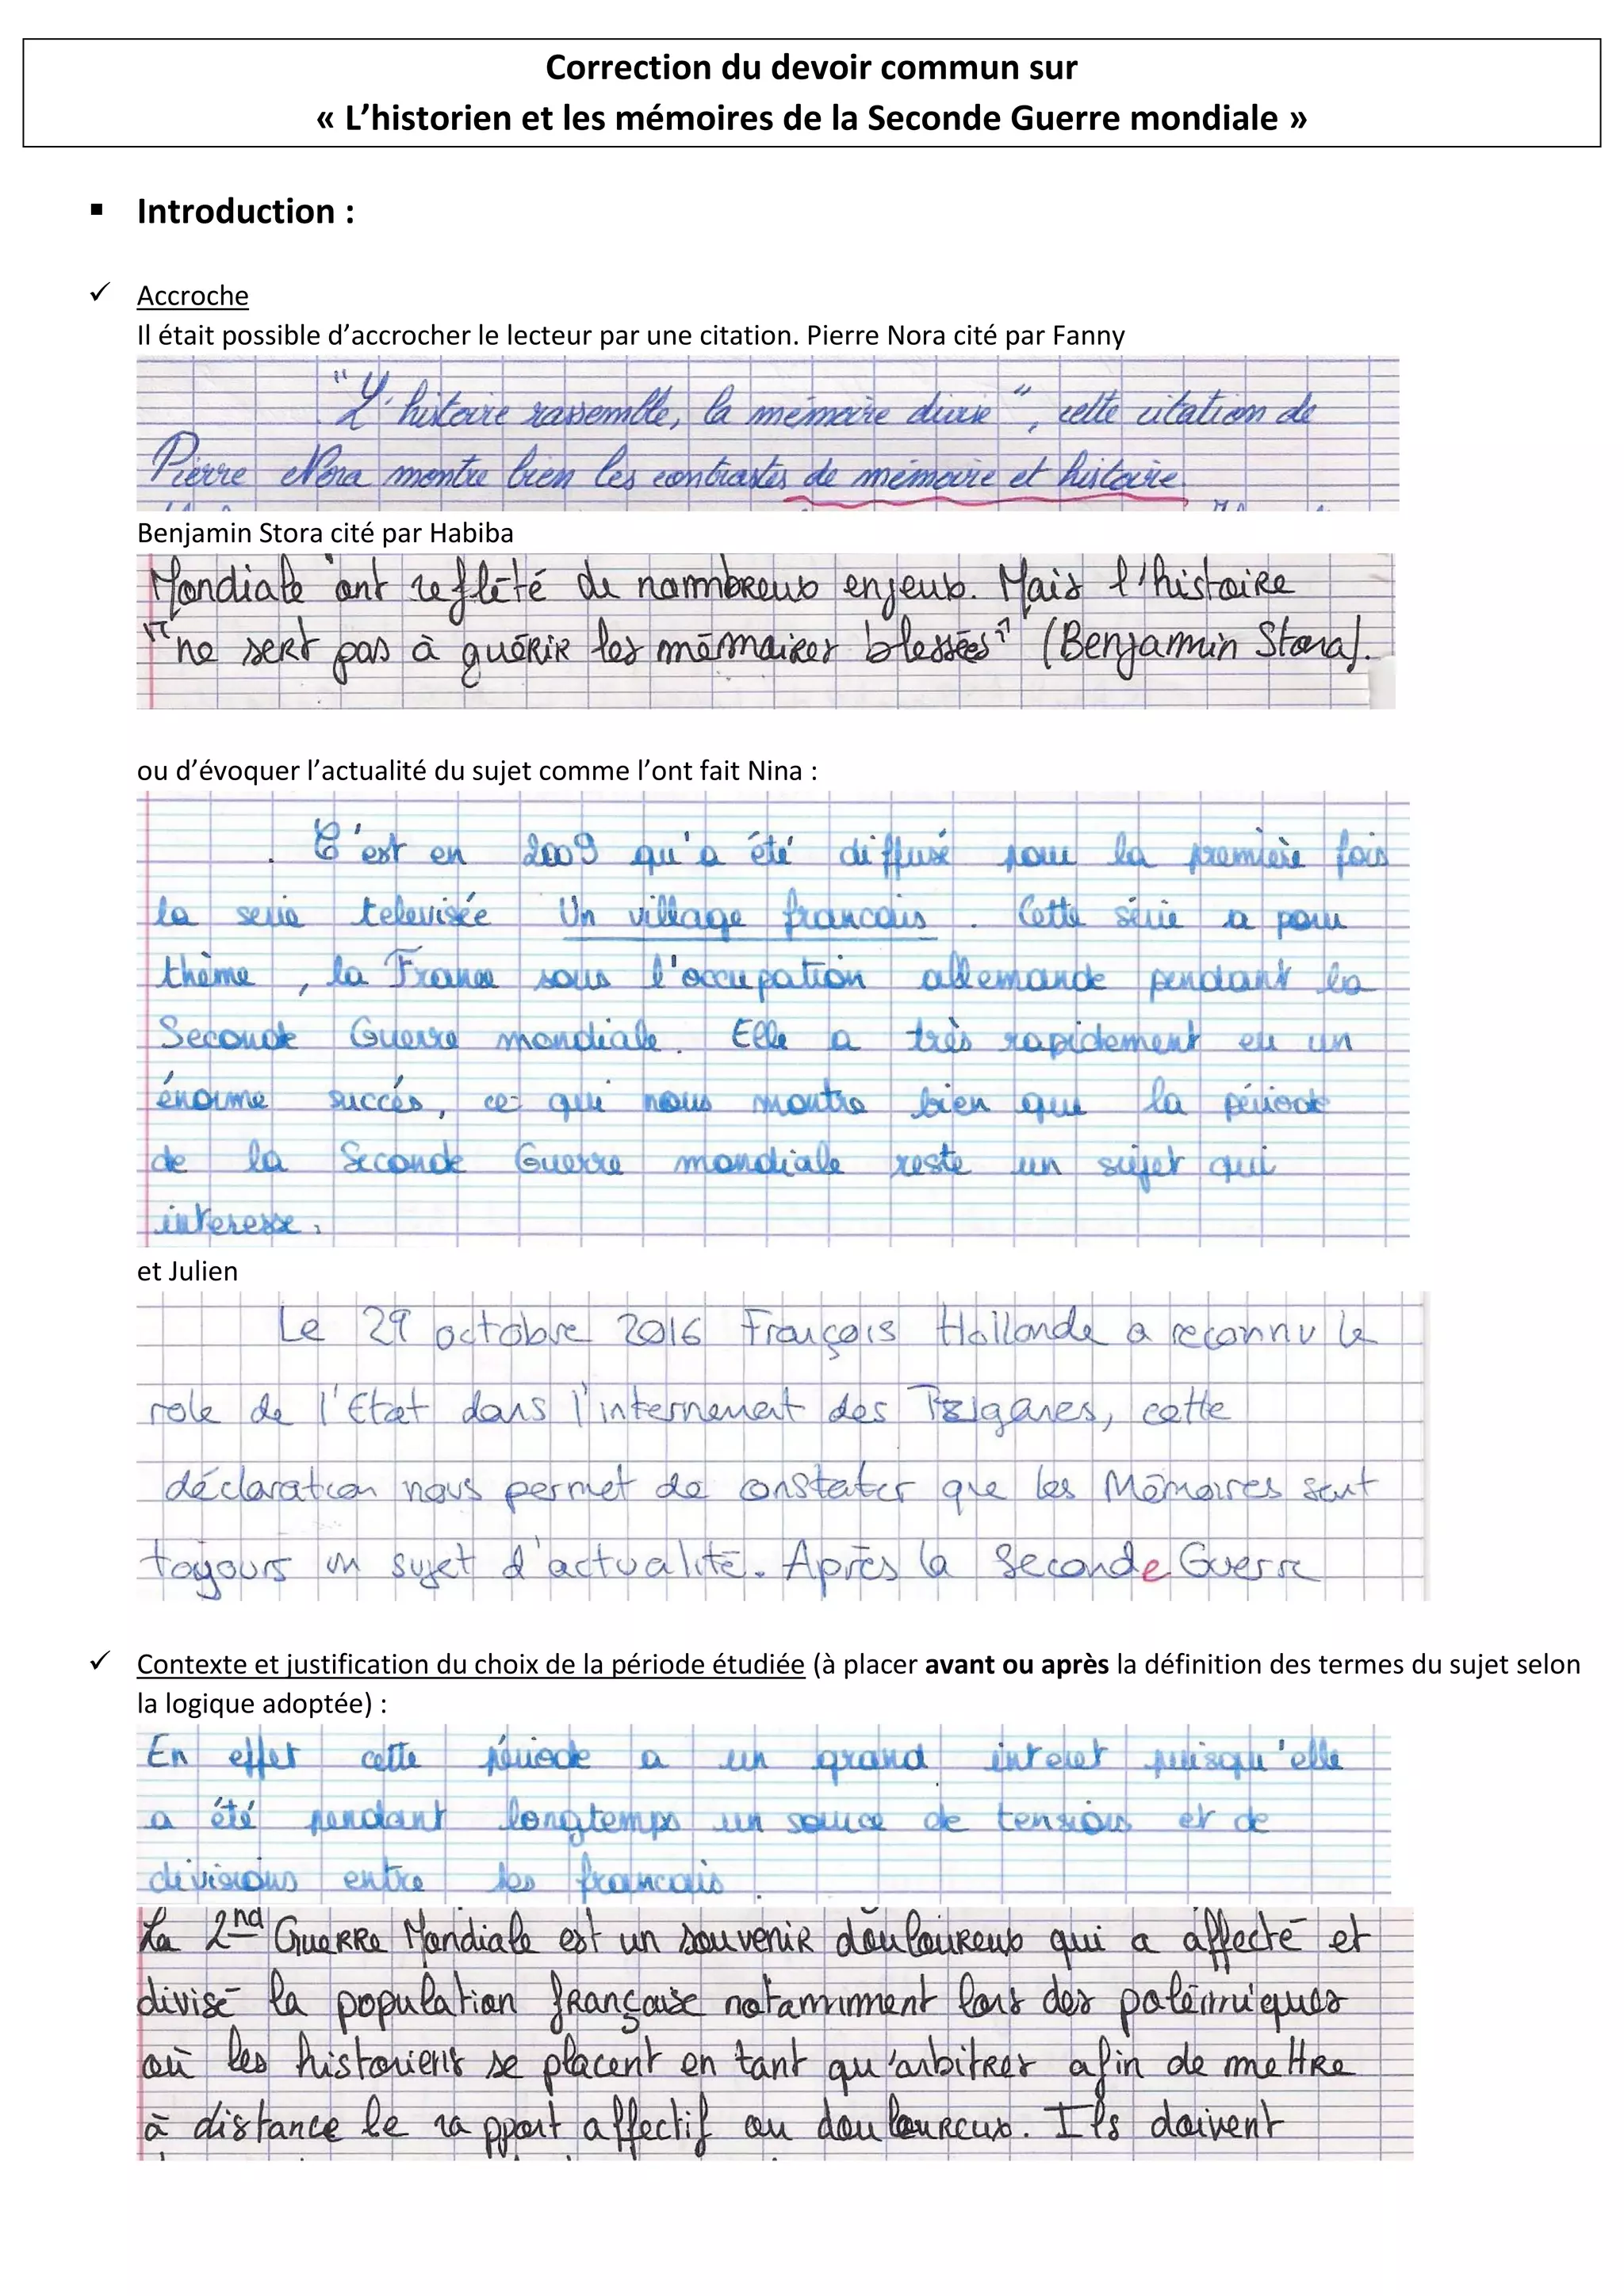 Correction du devoir commun sur
« L’historien et les mémoires de la Seconde Guerre mondiale »
▪ Introduction :
✓ Accroche
Il était possible d’accrocher le lecteur par une citation. Pierre Nora cité par Fanny
"L'histoire rassemble, la mémoire divise", cette citation de
Pierre Nora montre bien les contrastes de mémoire et histoire
Benjamin Stora cité par Habiba
Mondiale ont reflété de nombreux enjeux. Mais l'histoire
"ne sert pas à guérir les mémoires blessées" (Benjamin Stora).
ou d’évoquer l’actualité du sujet comme l’ont fait Nina :
C'est en 2009 qu'a été diffusé pour la première fois
la serie televisée Un village francais. Cette série a pour
thème, la France sous l'occupation allemande pendant la
Seconde Guerre mondiale. Elle a très rapidement eu un
énorme succés, ce qui nous montre bien que la période
de la Seconde Guerre mondiale reste un sujet qui
interesse.
et Julien
Le 29 octobre 2016 François Hollande a reconnu le
role de l'Etat dans l'internement des Tziganes, cette
déclaration nous permet de constater que les Mémoires sont
toujours un sujet d'actualité. Après la Seconde Guerre
✓ Contexte et justification du choix de la période étudiée (à placer avant ou après la définition des termes du sujet selon
la logique adoptée) :
En effet cette période a un grand interet puisqu'elle
a été pendant longtemps un source de tensions et de
divisions entre les francais.
La 2nd Guerre Mondiale est un souvenir douloureux qui a affecté et
divisé la population française notamment lors des polémiques
où les historiens se placent en tant qu'arbitres afin de mettre
à distance le rapport affectif ou douloureux. Ils doivent